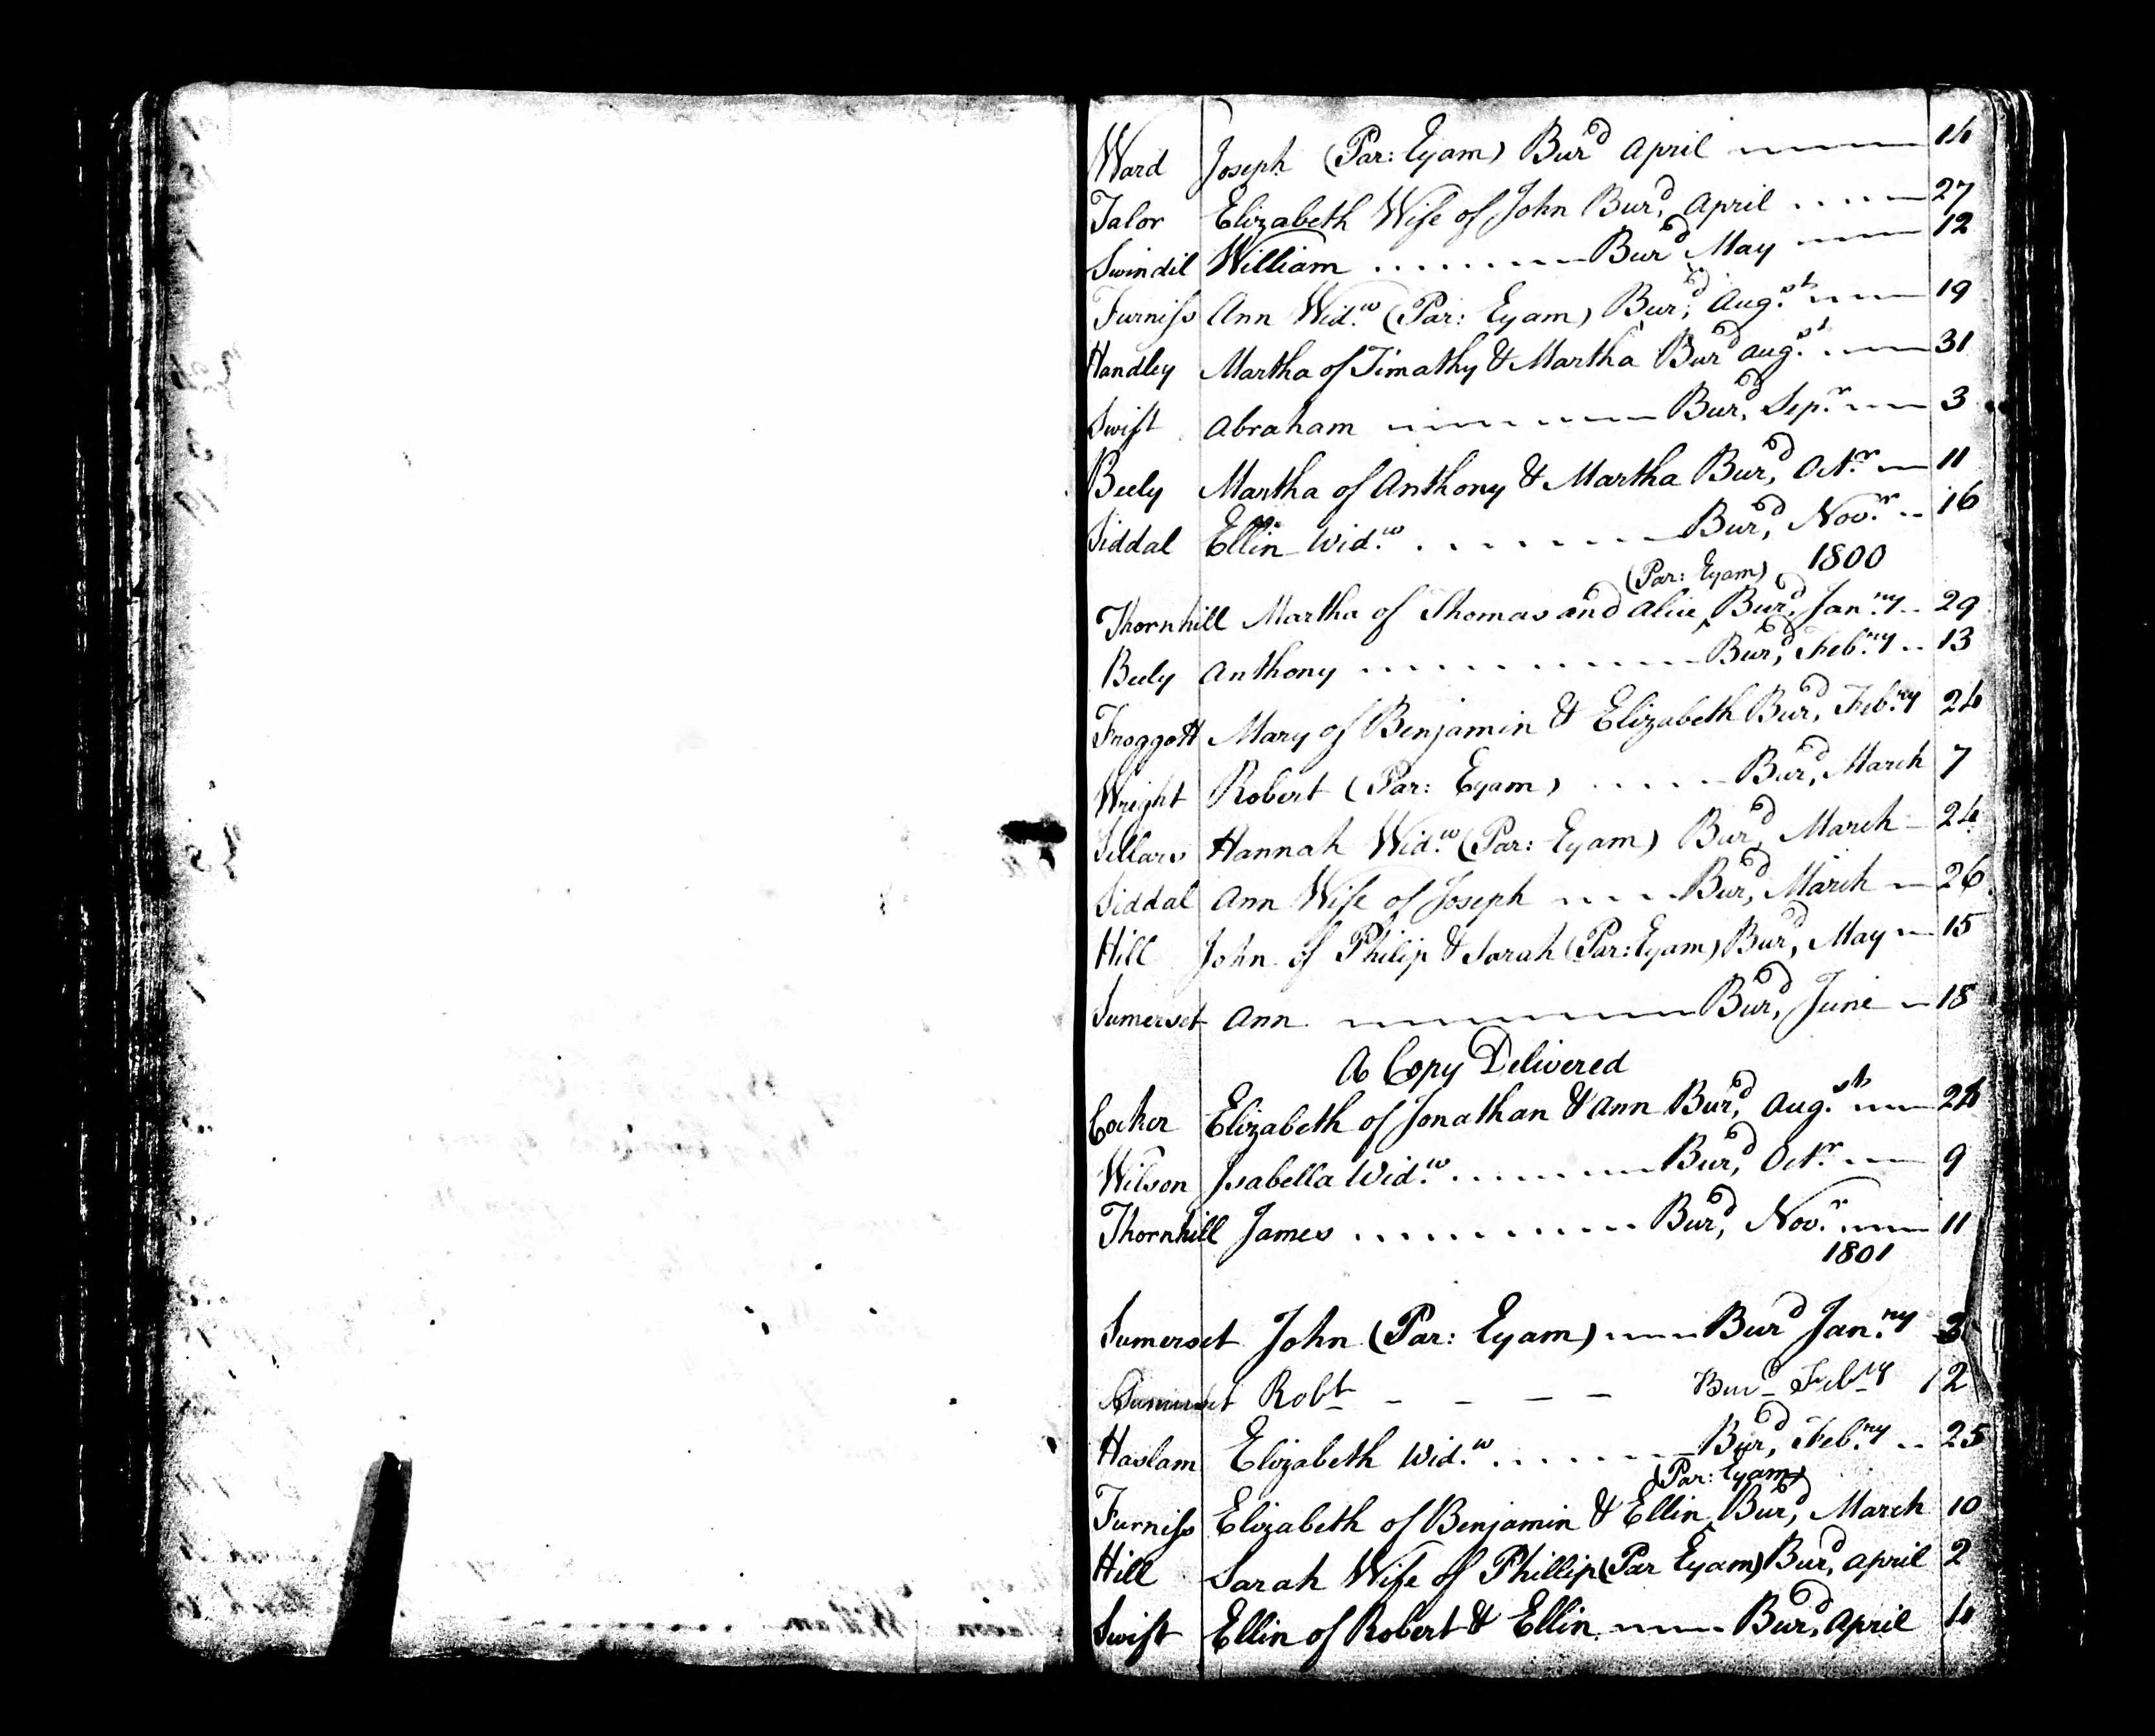 Ward Joseph (Par: Eyam) Bur.d April 14
Talor Elizabeth Wife of John Bur.d April 27
Swindil William Bur.d May 12
Furniss Ann Wid.w (Par: Eyam) Bur.d Aug.st 19
Handley Martha of Timathy & Martha Bur.d Aug.st 31
Swift Abraham Bur.d Sep.r 3
Beely Martha of Anthony & Martha Bur.d Oct.r 11
Siddal Ellin Wid.w Bur.d Nov.r 16
1800
(Par: Eyam)
Thornhill Martha of Thomas and Alice ^ Bur.d Jan.ry 29
Beely Anthony Bur.d Feb.ry 13
Froggott Mary of Benjamin & Elizabeth Bur.d Feb.ry 24
Wright Robert (Par: Eyam) Bur.d March 7
Sellars Hannah Wid.w (Par: Eyam) Bur.d March 24
Siddal Ann Wife of Joseph Bur.d March 26
Hill John of Philip & Sarah (Par: Eyam) Bur.d May 15
Sumerset Ann Bur.d June 18
A Copy Delivered
Cocker Elizabeth of Jonathan & Ann Bur.d Aug.st 24
Wilson Isabella Wid.w Bur.d Oct.r 9
Thornhill James Bur.d Nov.r 11
1801
Sumerset John (Par: Eyam) Bur.d Jan.ry
Robt Bur.d Feb.ry 12
Haslam Elizabeth Wid.w Bur.d Feb.ry 25
(Par: Eyam)
Furniss Elizabeth of Benjamin & Ellin ^ Bur.d March 10
Hill Sarah Wife of Phillip (Par Eyam) Bur.d April 2
Swift Ellin of Robert & Ellin Bur.d April 4